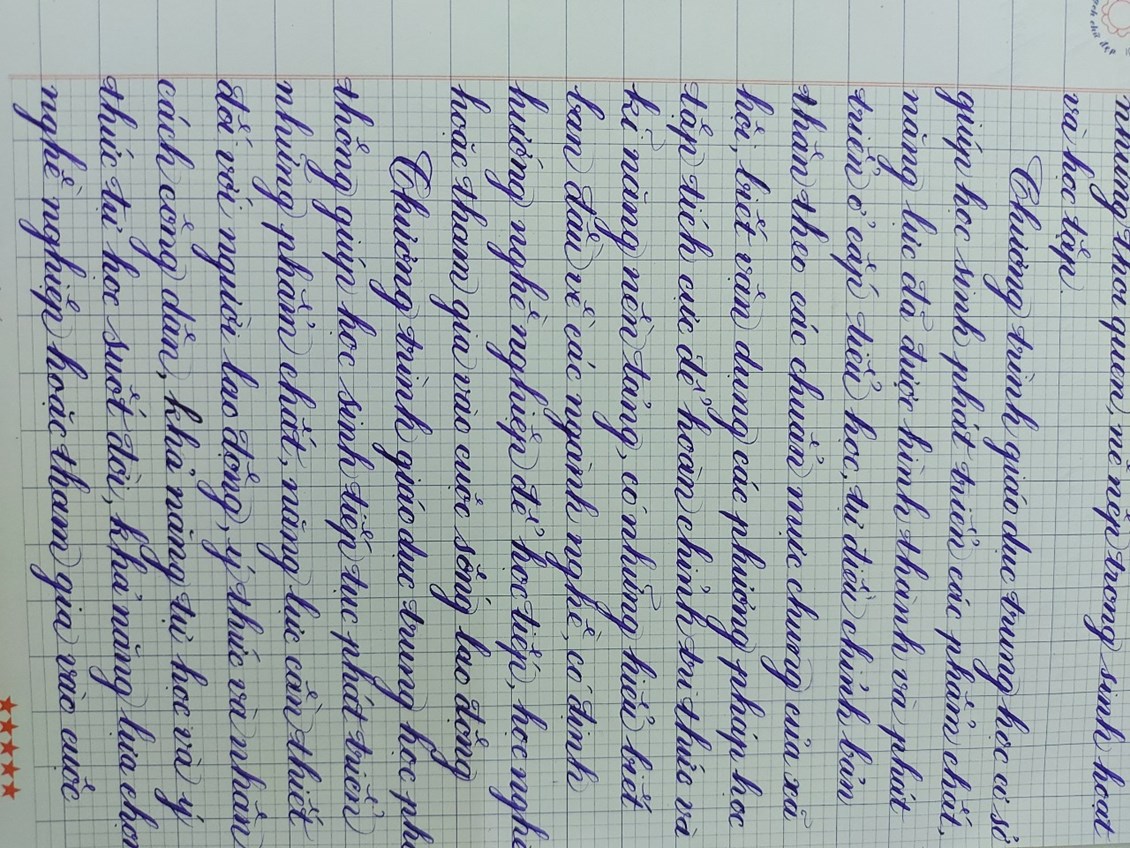 những thói quen, nề nếp trong sinh hoạt
và học tập.
Chương trình giáo dục trung học cơ sở
giúp học sinh phát triển các phẩm chất,
năng lực đã được hình thành và phát
triển ở cấp tiểu học, tự điều chỉnh bản
thân theo các chuẩn mực chung của xã
hội, biết vận dụng các phương pháp học
tập tích cực để hoàn chỉnh tri thức và
kĩ năng nền tảng, có những hiểu biết
ban đầu về các ngành nghề, có định
hướng nghề nghiệp để học tiếp, học nghề
hoặc tham gia vào cuộc sống lao động
Chương trình giáo dục trung học phổ
thông giúp học sinh tiếp tục phát triển
những phẩm chất, năng lực cần thiết
đối với người lao động, ý thức và nhân
cách công dân, khả năng tự học và ý
thức tự học suốt đời, khả năng lựa chọn
nghề nghiệp hoặc tham gia vào cuộc